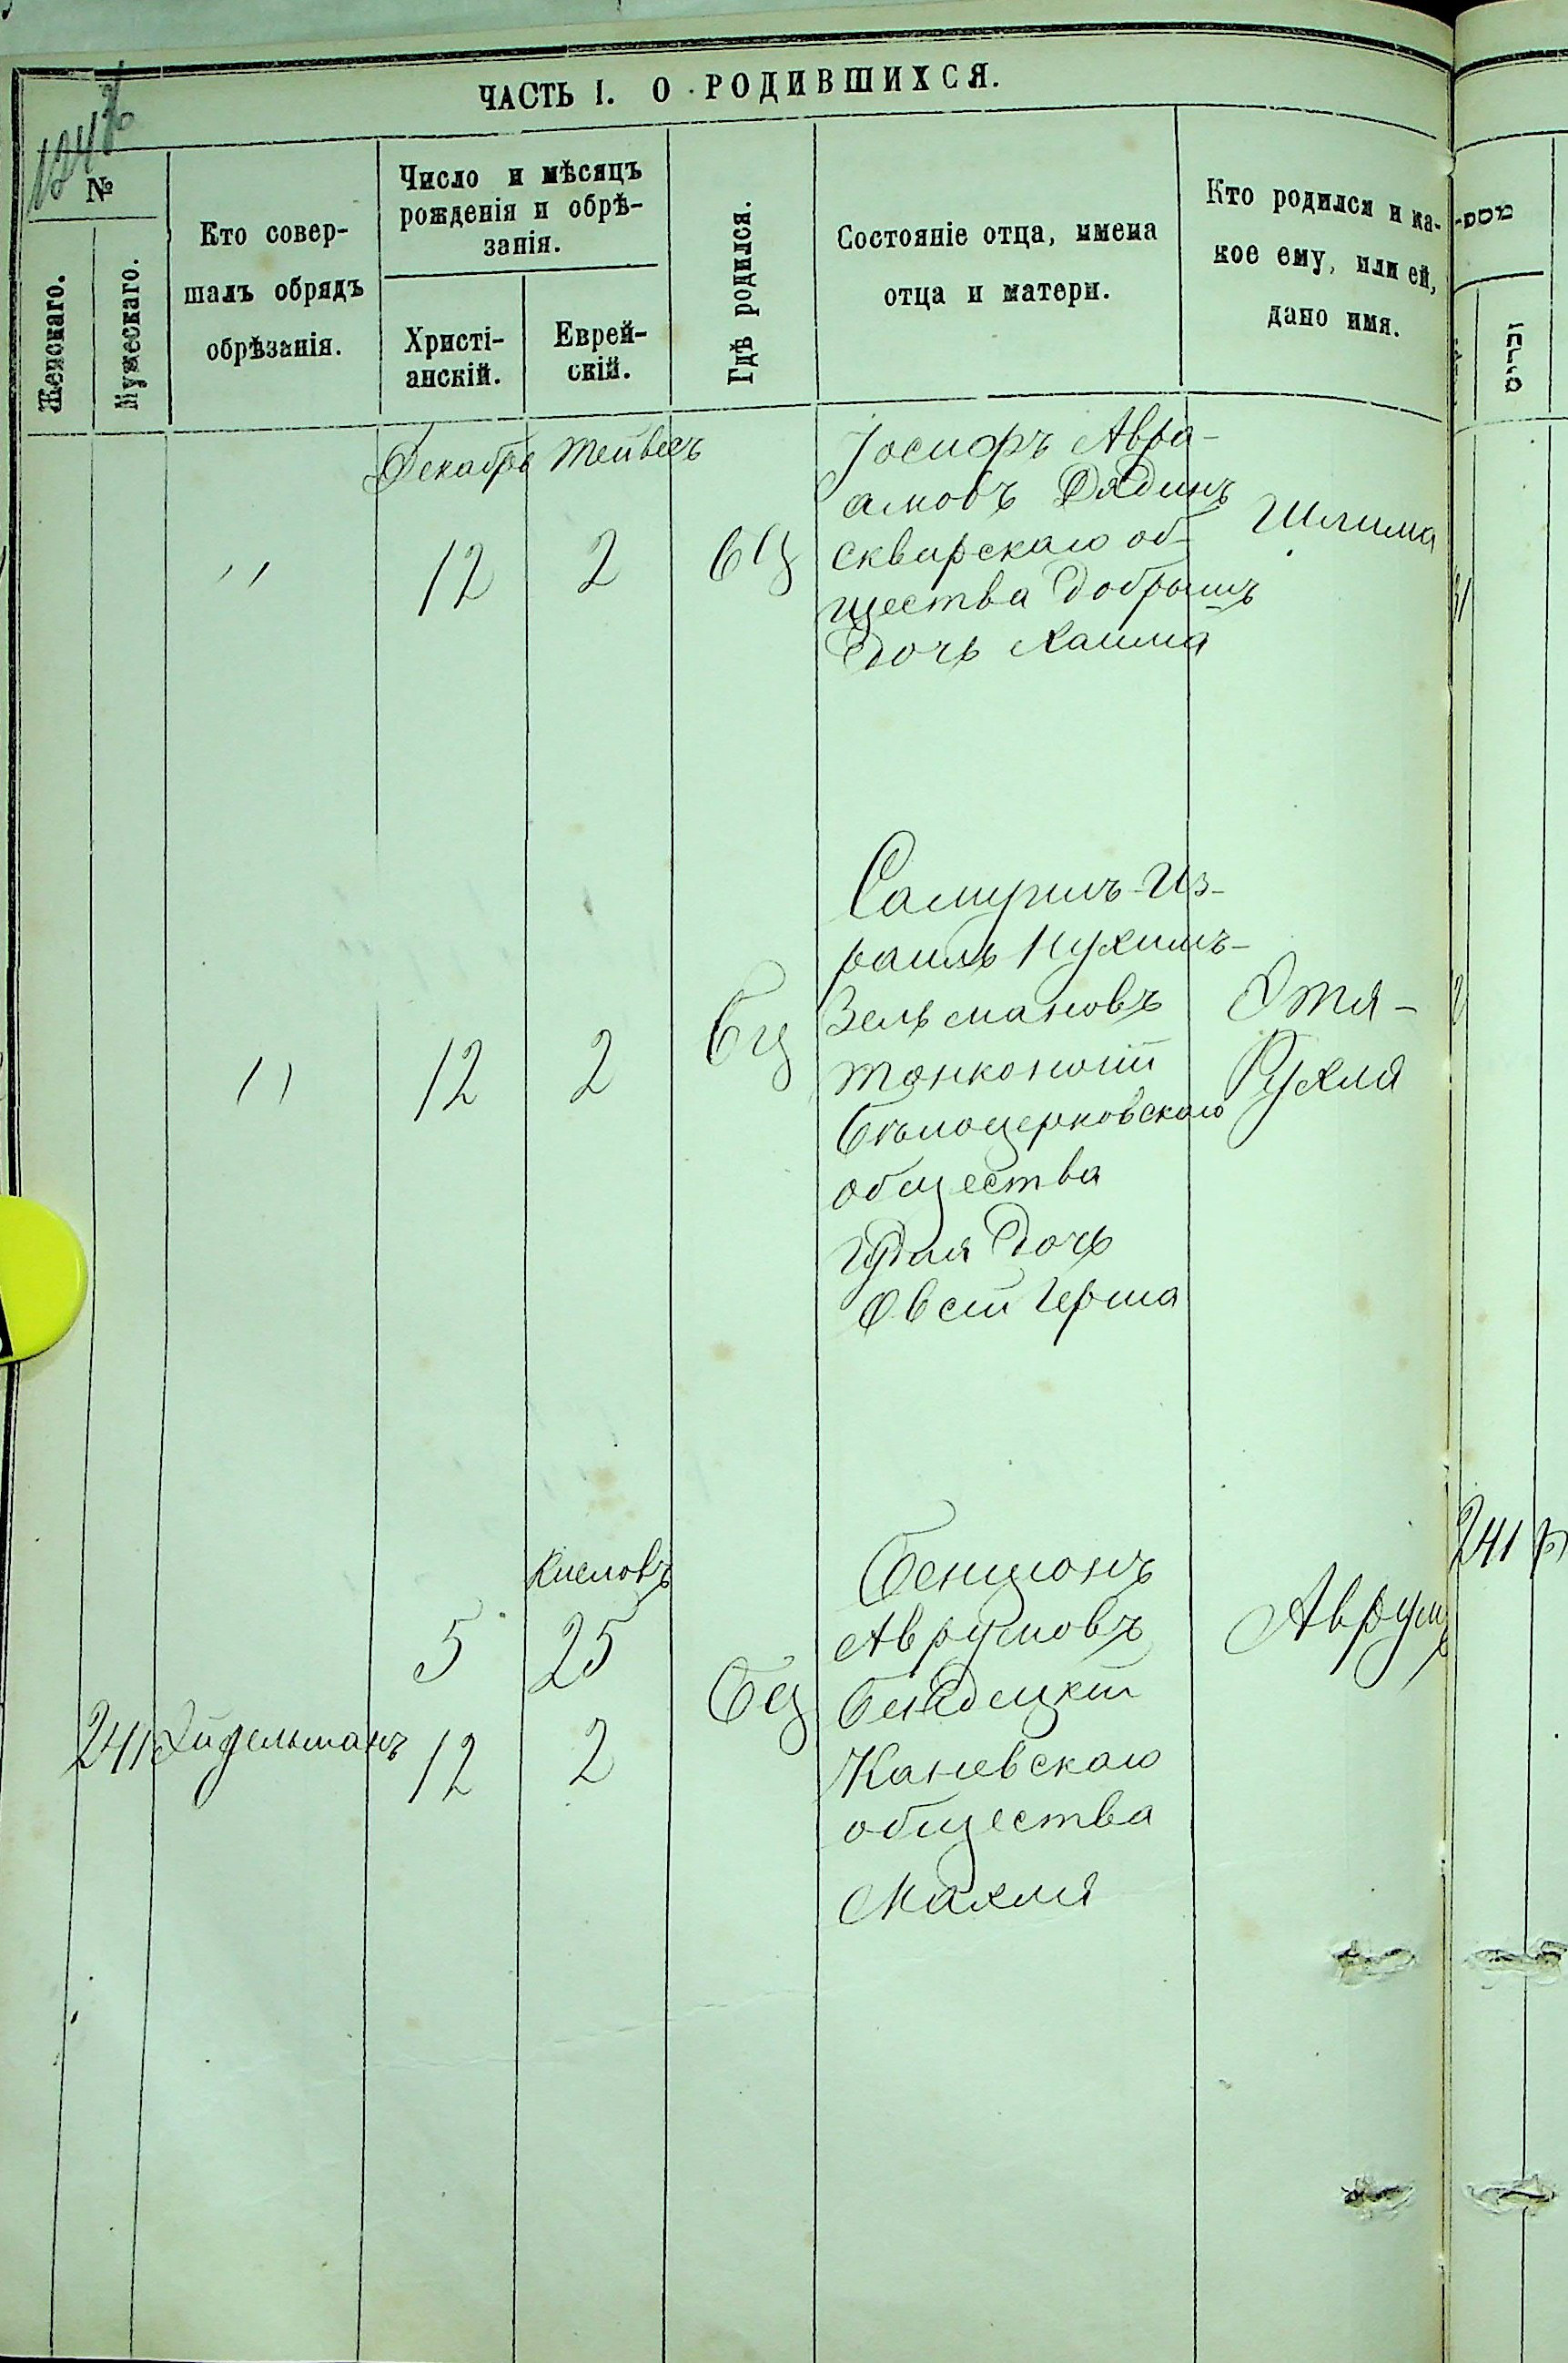 ЧАСТЬ I. О РОДИВШИХСЯ.
№
Женскаго.
Мужескаго.
Кто совер-
шалъ обрядъ
обрѣзанія.
Число и мѣсяцъ
рожденія и обрѣ-
занія.
Христі-
анскій.
Еврей-
скій.
Гдѣ родился.
Состояніе отца, имена
отца и матери.
Кто родился и ка-
кое ему, или ей,
дано имя.
Декабрь Тейвесъ
" 12 2 бц
Іосифъ Авра-
амовъ Дядинъ
Сквирскаго об-
щества Добрышъ
дочь Хаима
Шлима
" 12 2 бц
Самуилъ-Из-
раиль Нухимъ-
Зельмановъ
Тонконогій
Бѣлоцерковскаго
общества
Гудля дочь
Овсій Герша
Этя-
Рухля
Кислевъ
5 25
241 Эйдельманъ 12 2 бц
Бенціонъ
Аврумовъ
Бендецкій
Каневскаго
общества
Махля
Аврумъ
241